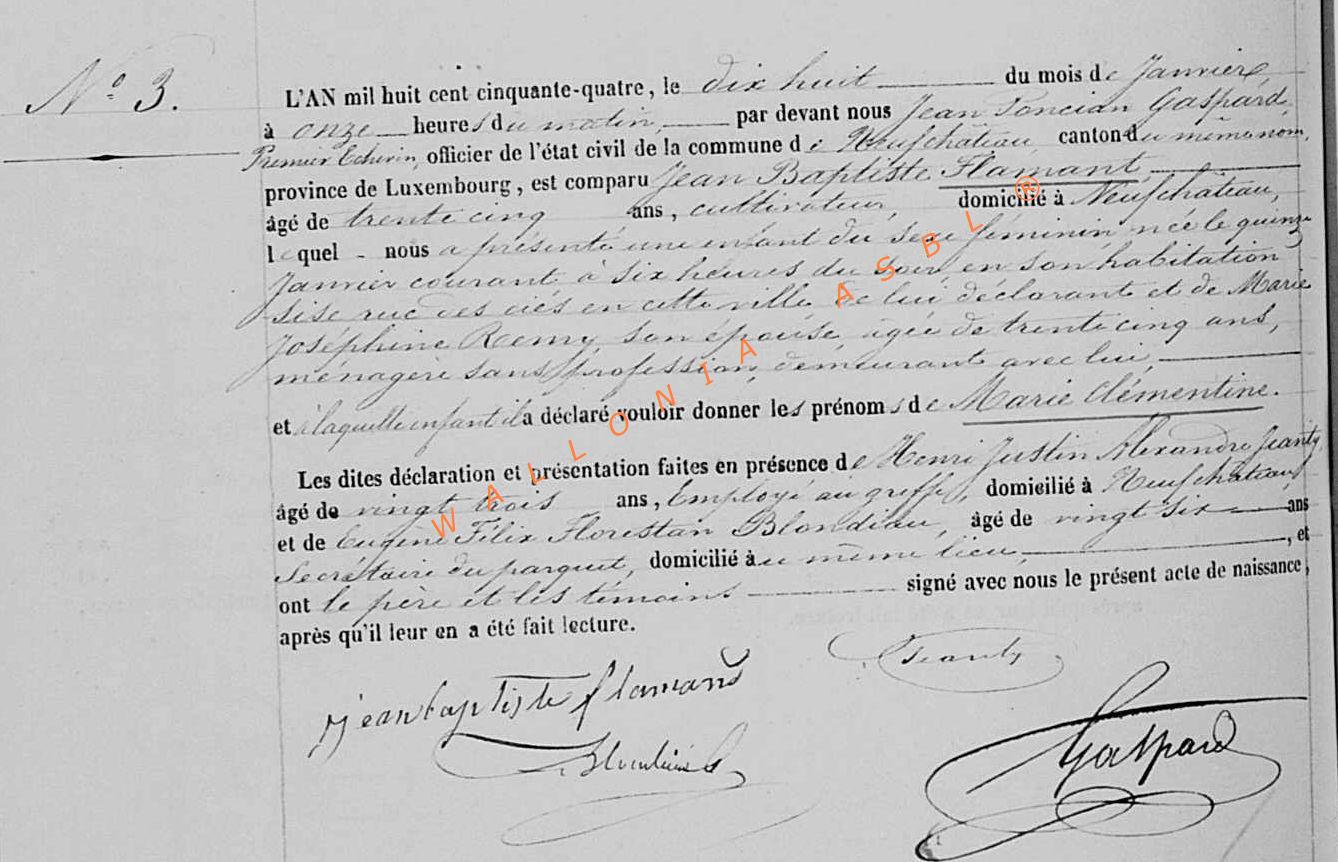 N° 3.
L'AN mil huit cent cinquante-quatre, le dix huit du mois de Janvier,
à onze heures du matin, par devant nous Jean Poncian Gaspard
Premier Echevin, officier de l'état civil de la commune de Neufchâteau canton du même nom,
province de Luxembourg, est comparu Jean Baptiste Flamant
âgé de trente cinq ans, cultivateur, domicilié à Neufchâteau,
lequel nous a présenté une enfant du sexe féminin née le quinze
Janvier courant à six heures du soir, en son habitation
sise rue des en cette ville, de lui déclarant et de Marie
Joséphine Remy son épouse, agée de trente cinq ans,
ménagère sans profession, demeurant avec lui,
et à laquelle enfant il a déclaré vouloir donner les prénoms de Marie Clémentine.
Les dites déclaration et présentation faites en présence de Henri Justin Alexandre Jeanty
âgé de vingt trois ans, Employé au greffe, domicilié à Neufchâteau
et de Eugène Félix Florestan Blondiau, âgé de vingt six ans
Secrétaire du parquet, domicilié au même lieu, et
ont le père et les témoins signé avec nous le présent acte de naissance,
après qu'il leur en a été fait lecture.
Jeanty
jean baptiste flamand
Gaspard
WALLONIA ASBL ®